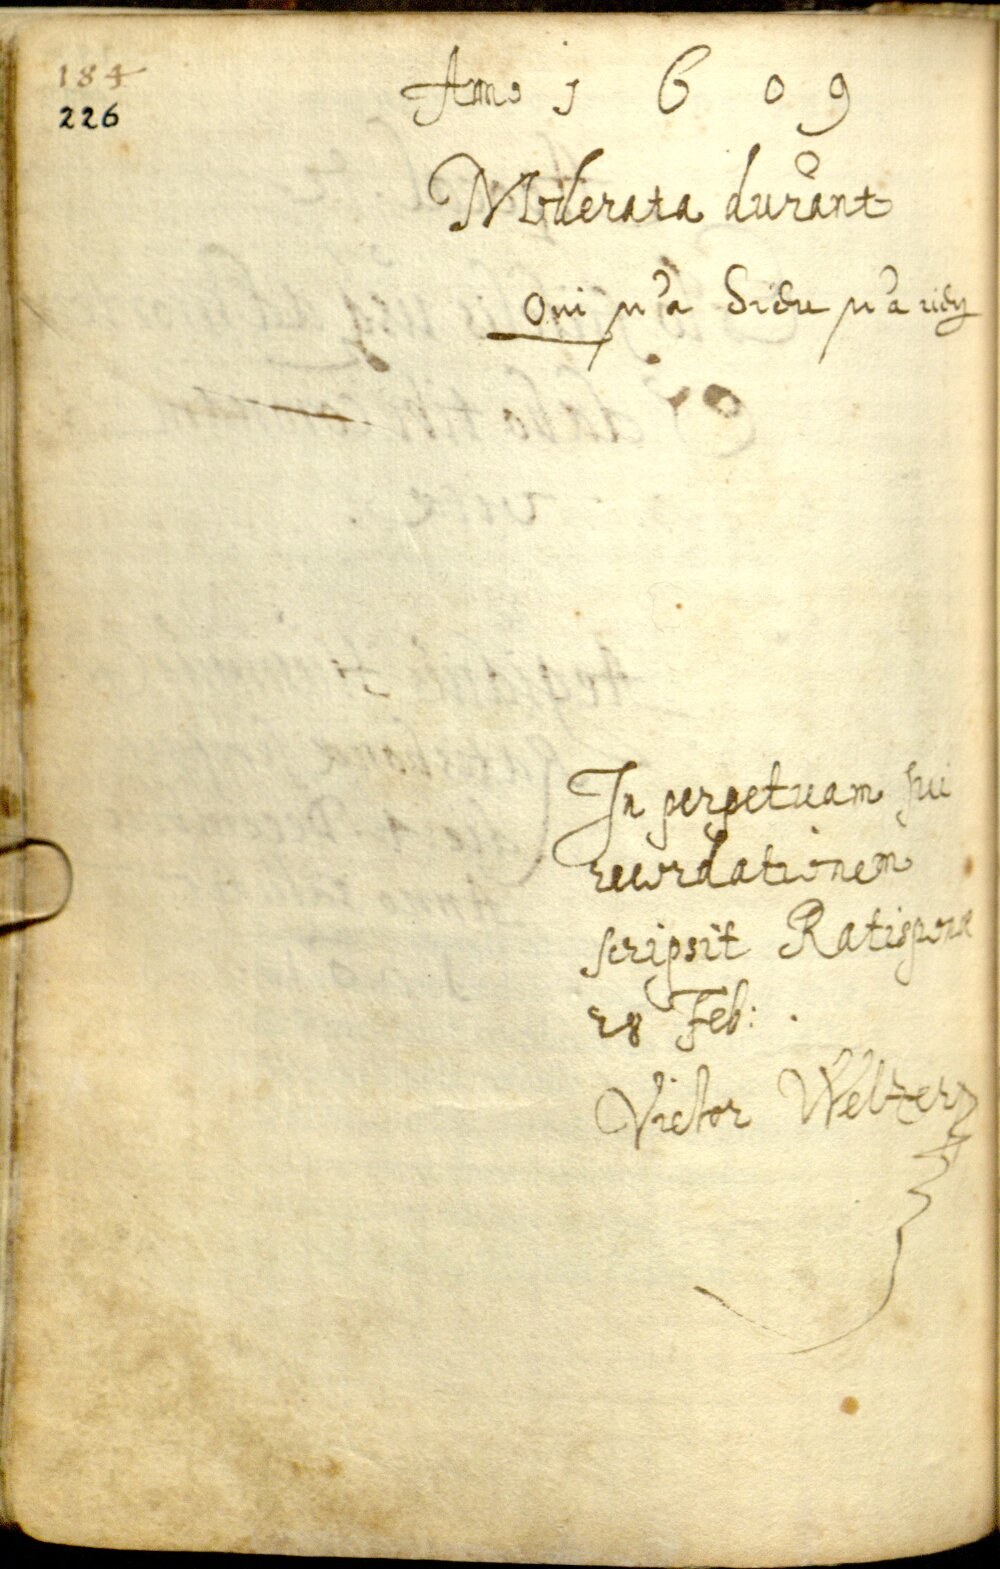 184
226
Anno 1 6 0 9
Moderata durant
In perpetuam sui
recordationem
scripsit Ratisponæ
28 Feb:
Victor Welzer